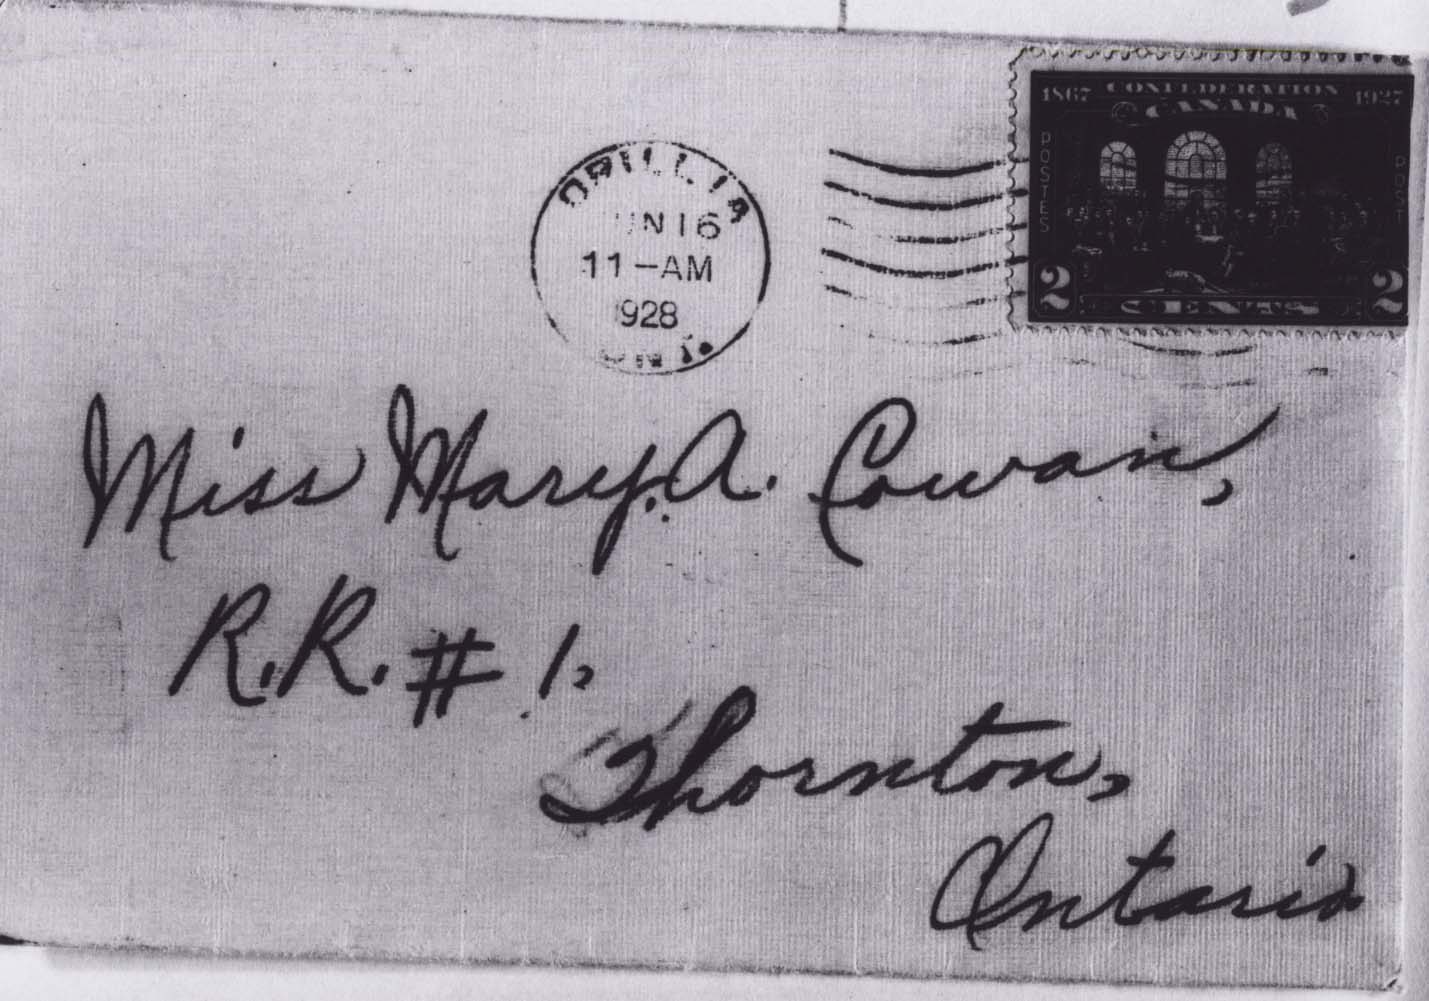 1867 CONFEDERATION 1927
CANADA
POSTES
POST
2 CENTS 2
ORILLIA
UN 16
11-AM
1928
ONT.
Miss Mary. A. Cowan,
R.R. # 1,
Thornton,
Ontario